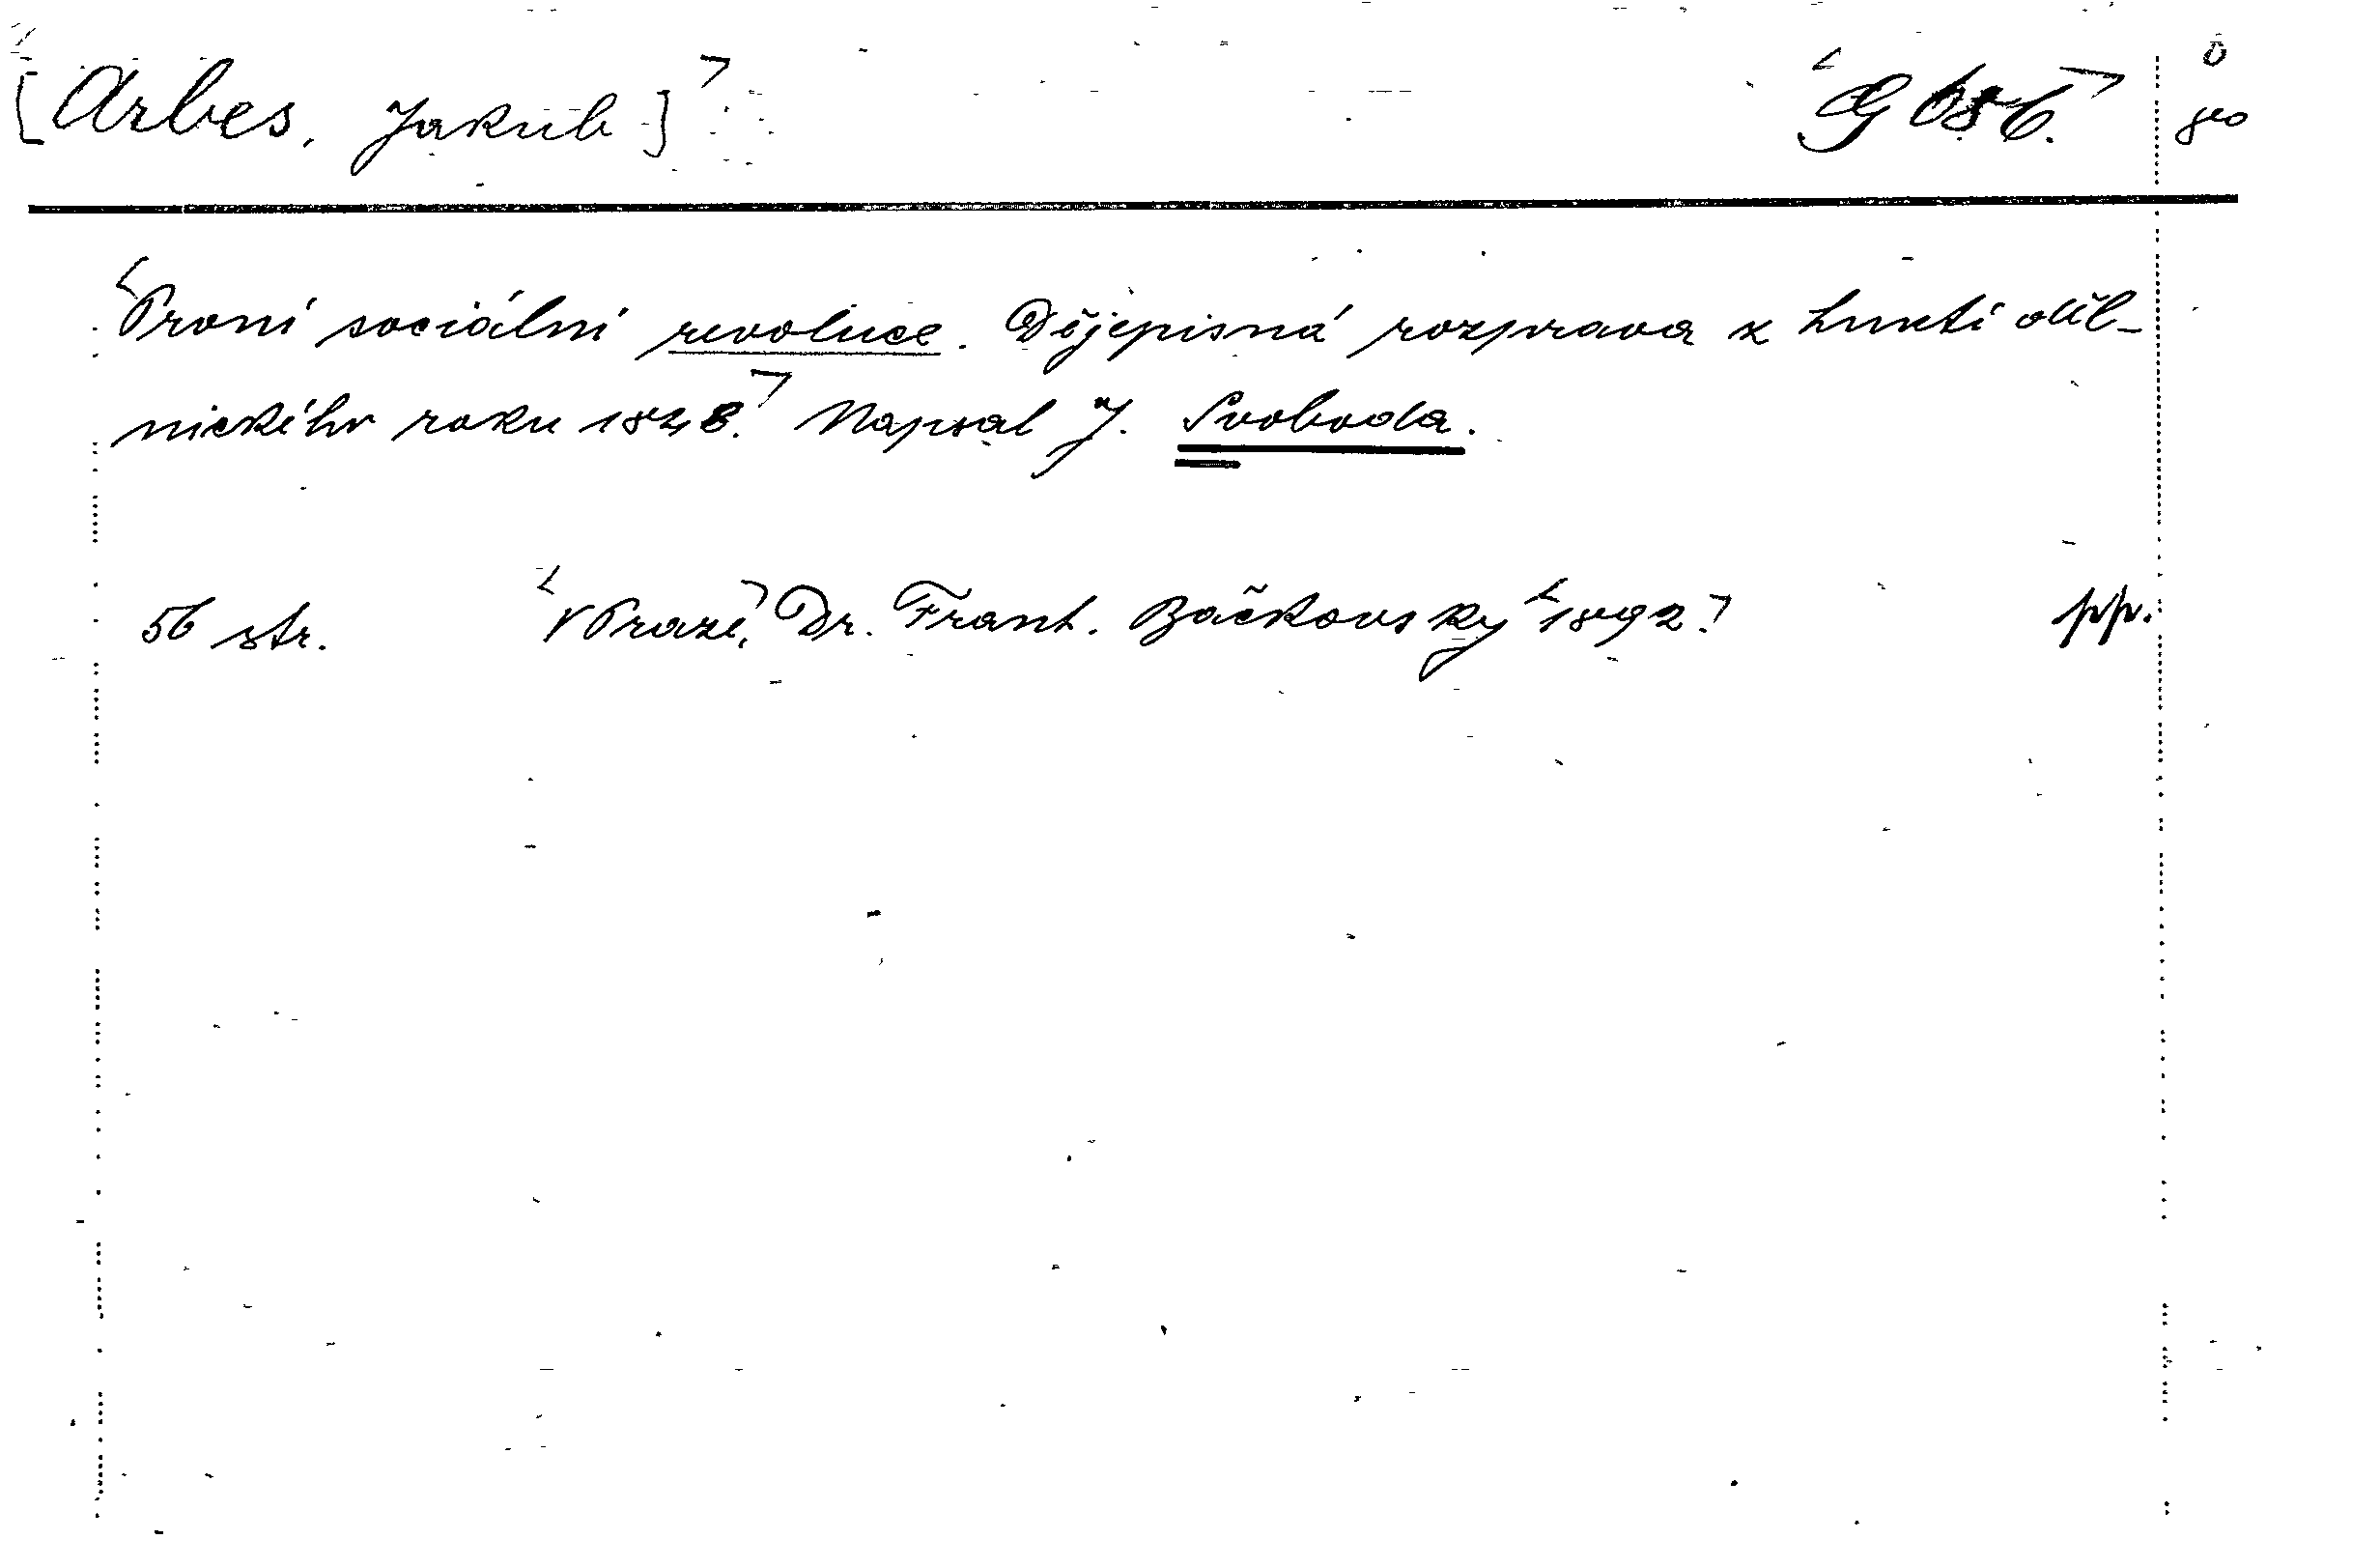 [Arbes, Jakub] G 686.
První sociální revoluce. Dějepisná rozprava z hnutí děl-
nického roku 1848. Napsal J. Svoboda.
56 str. V Praze, Dr. Frant. Bačkovský 1892. pp.